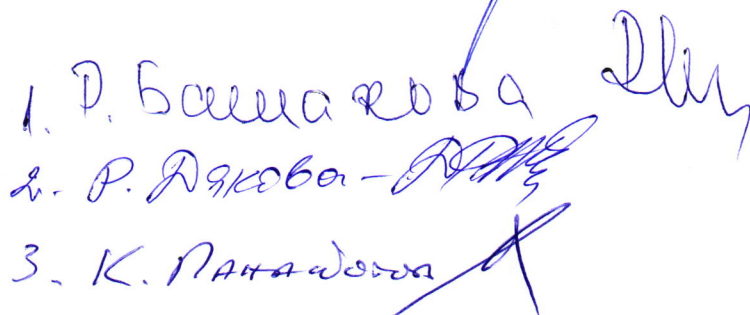 1. Р. Башакова
2. Р. Дякова -
3. К. Панайотова